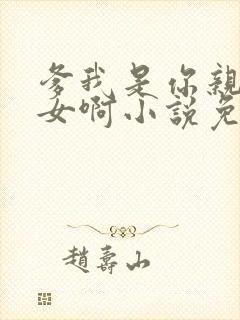 爹我是你親
女啊小説免
趙壽山